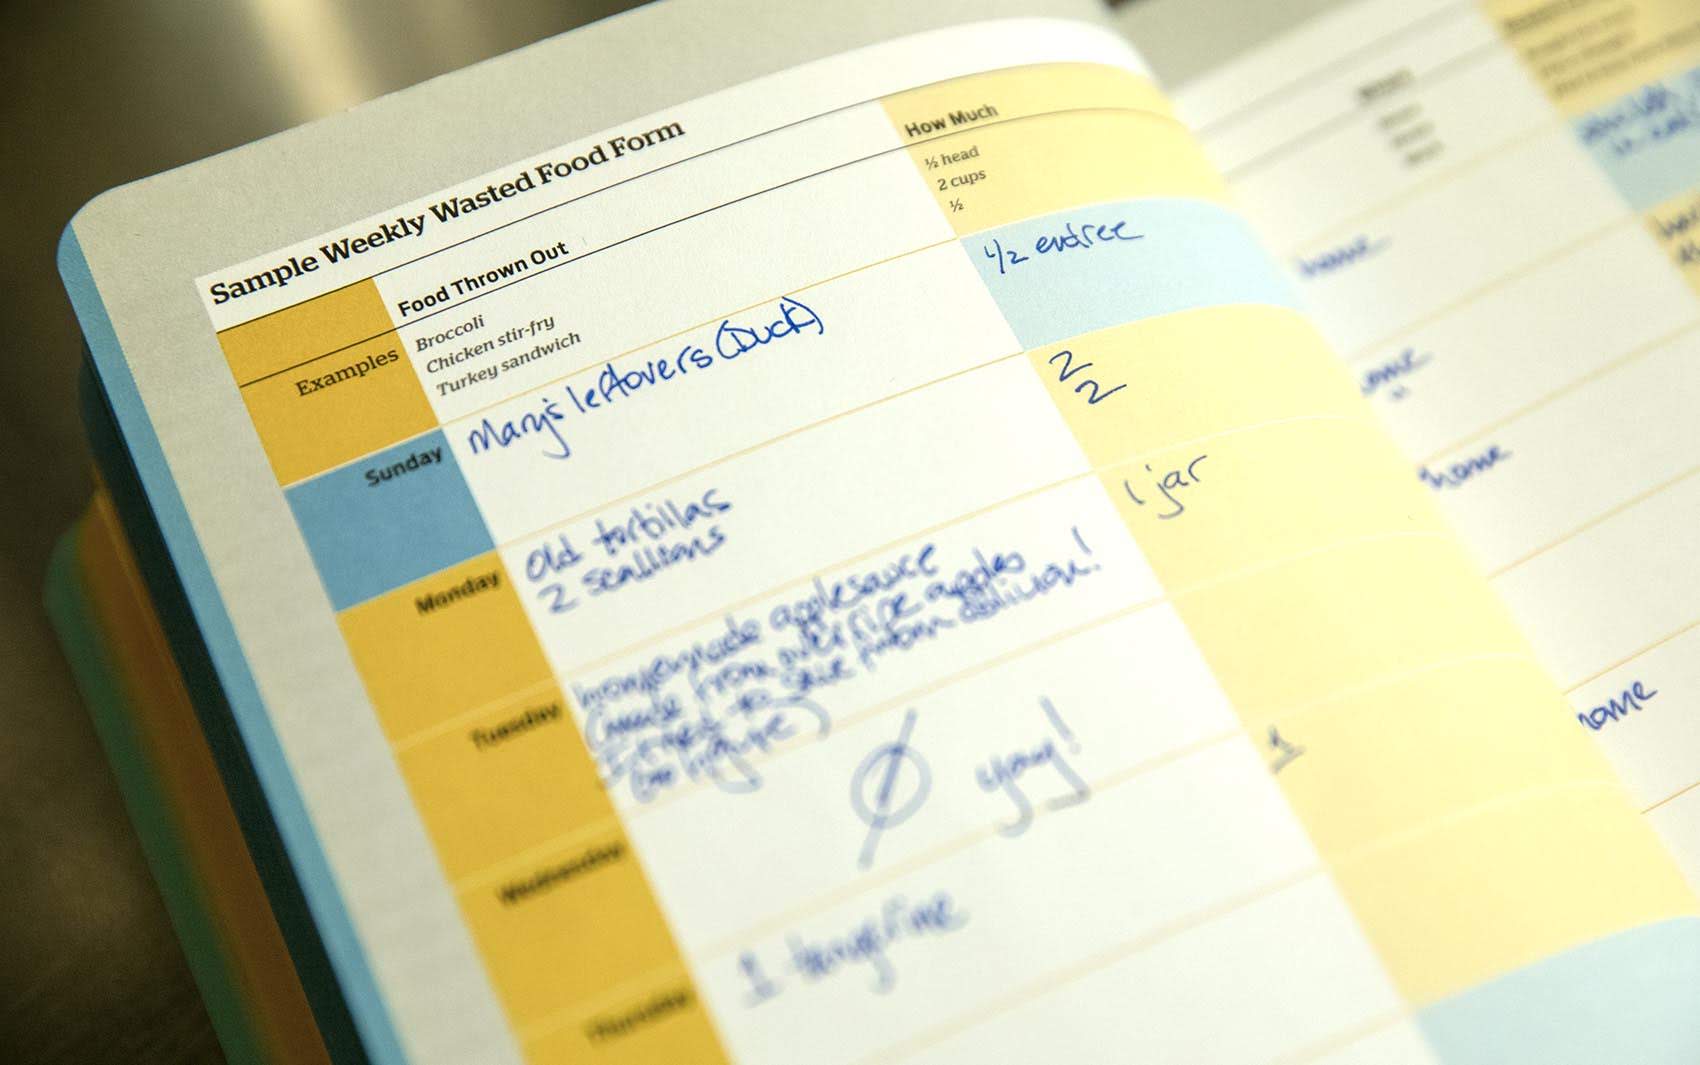 Sample Weekly Wasted Food Form
Food Thrown Out
How Much
Examples
Broccoli
½ head
Chicken stir-fry
2 cups
Turkey sandwich
½
Sunday
Mary's leftovers (Duck)
1/2 entree
Monday
old tortillas
2
2 scallions
2
Tuesday
homemade applesauce
1 jar
(made from overripe apples
I tried to save from oblivion!
Wednesday
Ø yay!
Thursday
1 tangerine
1
home
home
home
home